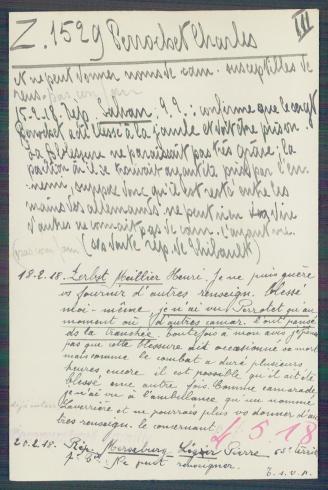 Z. 1529 Perrochet Charles
III
et ne peut donner noms de cam. susceptibles de
rens. pas com/fam
15-2-18. Rép. : 9.9 : confirme que le
Perrochet a été blessé à la jambe et doit être prison.
sa blessure ne paraissait pas très grave; la
où il se trouvait ayant été prise par l'en-
nemi, suppose donc qu'il est resté entre les
mains des allemands. ne peut rien dire
d'autre ne connait pas de cam. l'ayant vu.
(sans doute rép. de Thibault)
pas com/fam
18-2-18. Zerbst Meillier Henri. Je ne puis guère
vs fournir d'autres renseign. Blessé
moi-même je n'ai vu Perrochet qu'au
moment où d'autres camar. l'ont pansé
ds la tranchée toutefois à mon avis je
pas que cette blessure ait occasionné sa mort
mais comme le combat a duré plusieurs
heures encore il est possible qu'il ait été
blessé une autre fois. Comme camarade
je n'ai vu à l'ambulance qu'un nommé
Laverrière et ne pourrais plus vs donner d'au-
tres renseign. le concernant
4 5.18
20-2-18. Rép. Merseburg Légier Pierre 55e territ
7e Ne peut renseigner.
T.s.v.p.